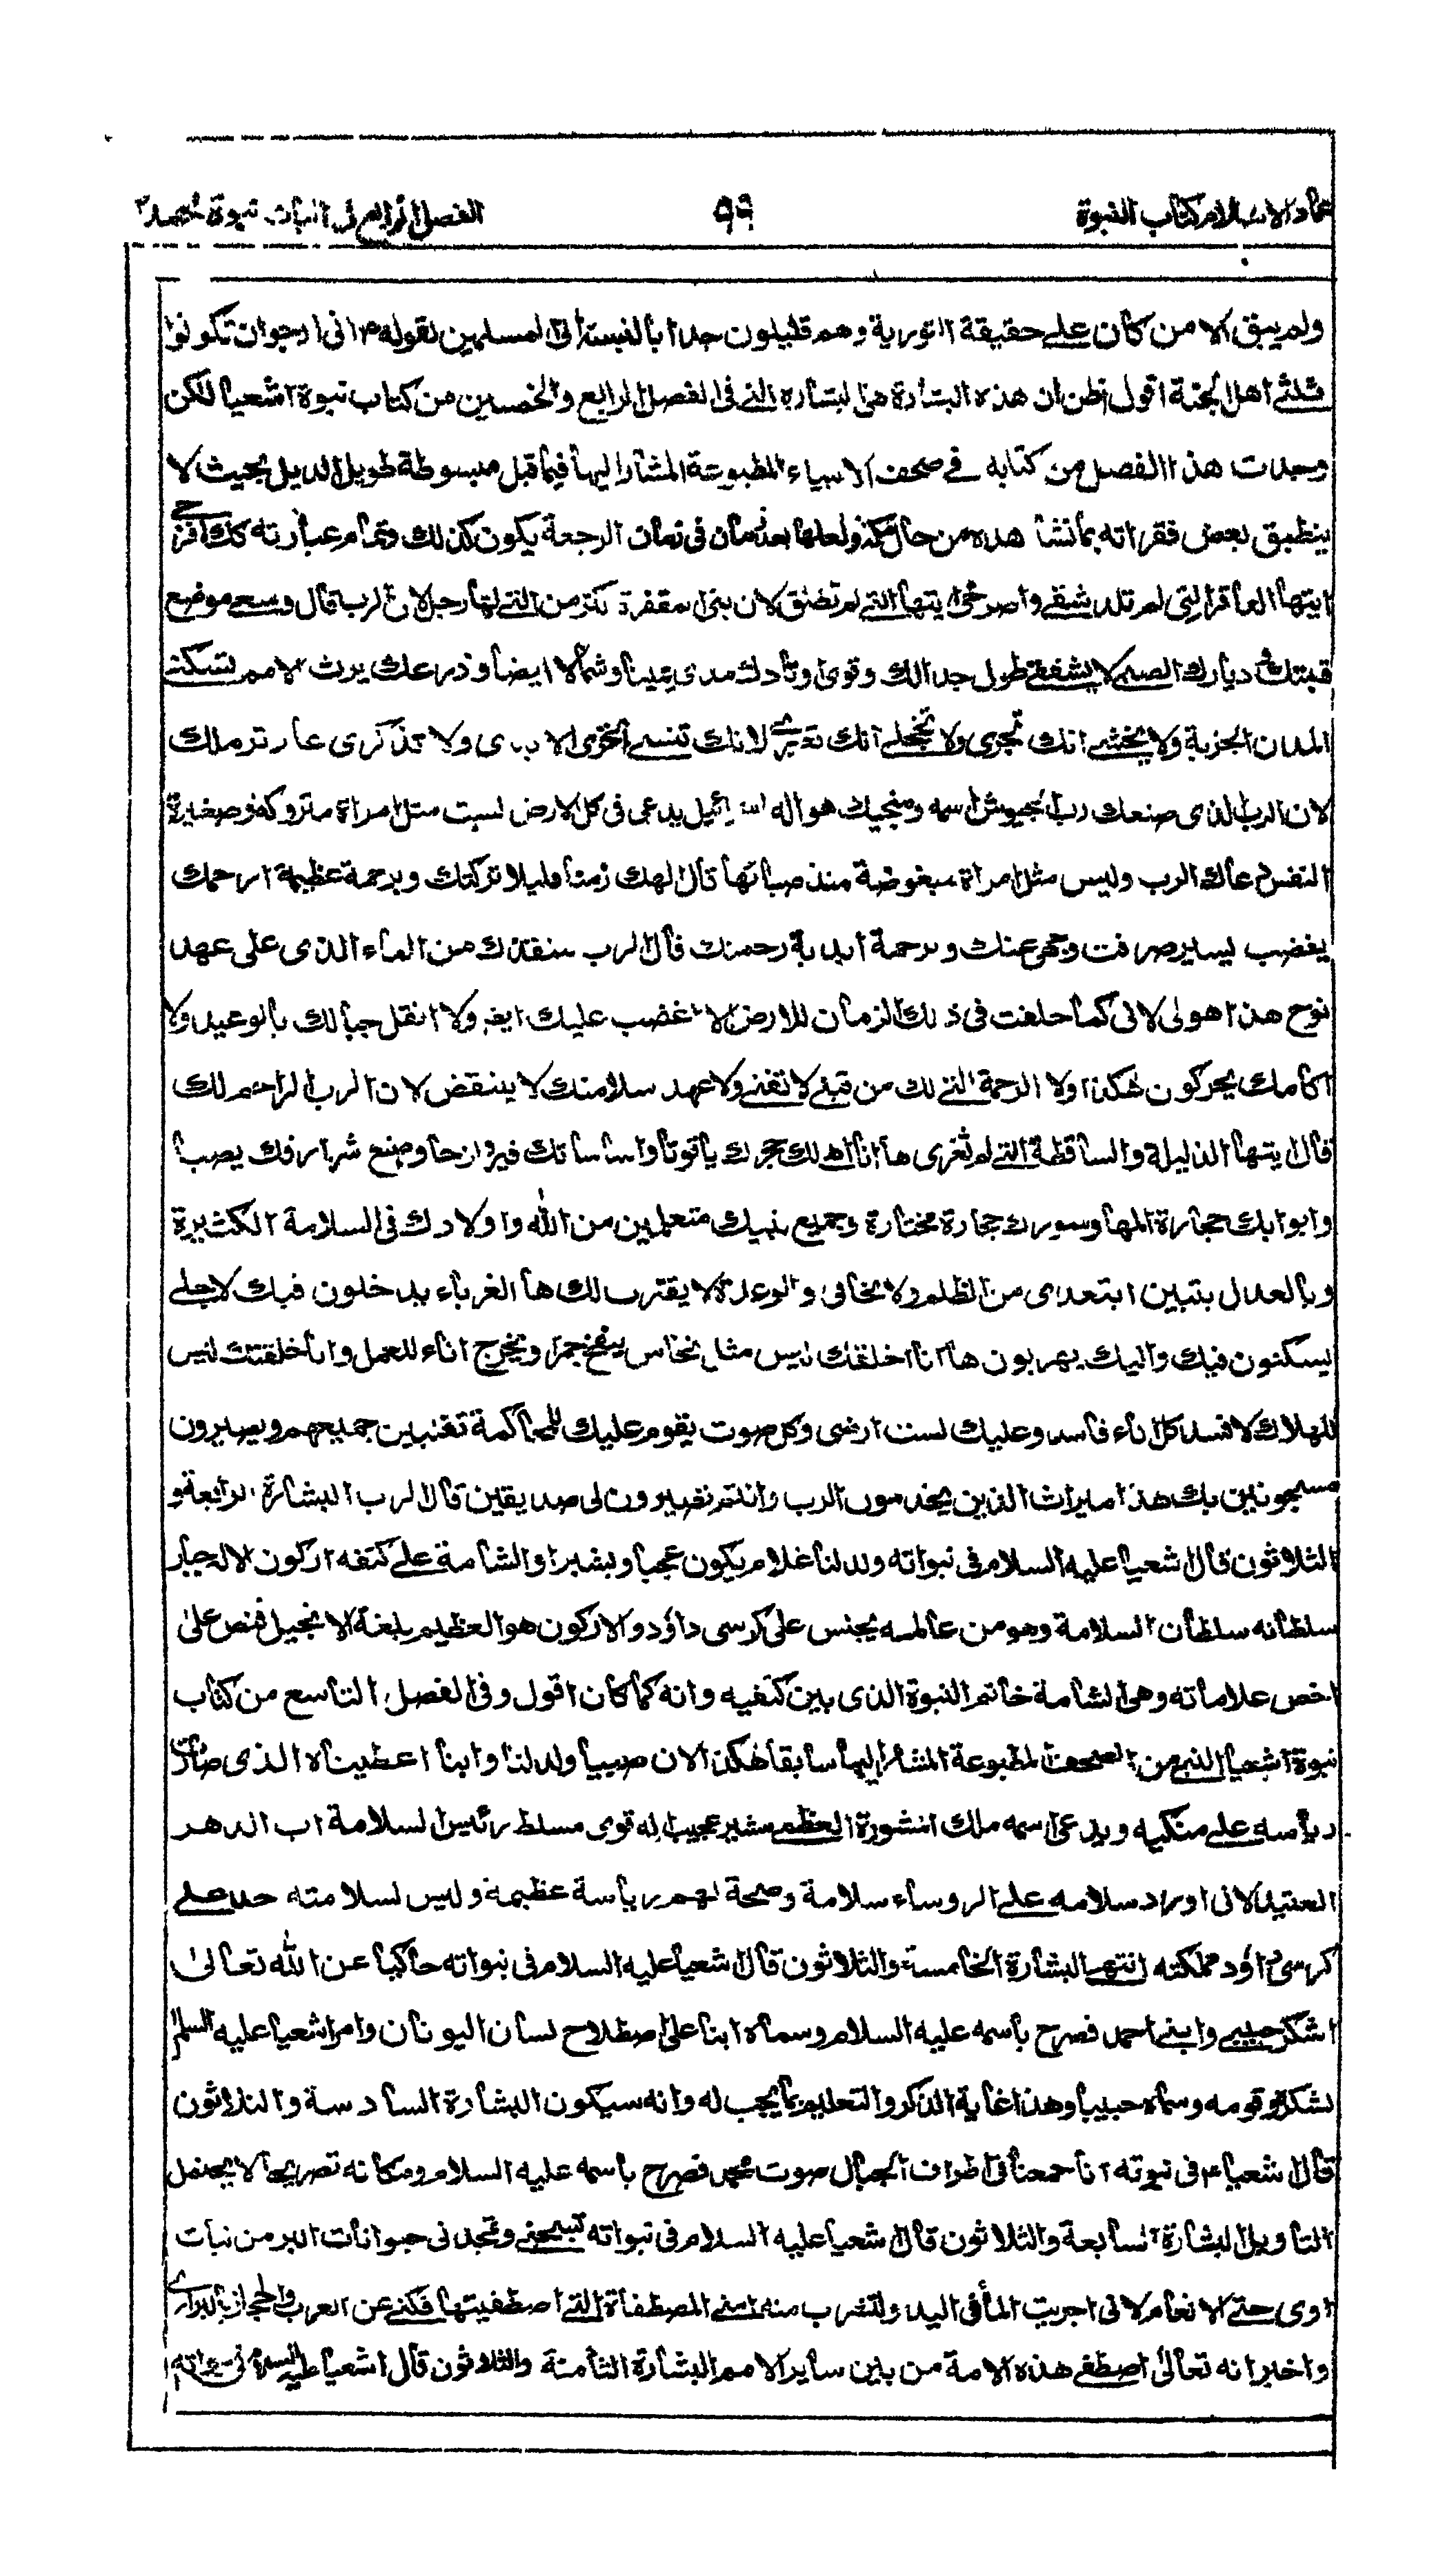 عماد الاسلام كتاب النبوة
٩٩
الفصل الرابع فى اثبات نبوة محمد
ولم يبق الا من كان على حقيقة التورية وهم قليلون جدا بالنسبة الى المسلمين لقوله انى ارجو ان تكونوا
ثلثى اهل الجنة اقول اظن ان هذه البشارة هى البشاره التى فى الفصل الرابع والخمسين من كتاب نبوة اشعيا لكن
وجدت هذا الفصل من كتابه فى صحف الانبياء المطبوعة المشار اليها فيما قبل مبسوطة طويل الذيل بحيث لا
ينطبق بعض فقراته بما نشاهده من حال مكة ولعلها بعد زمان فى زمان الرجعة يكون كذلك وتمام عبارته كك افرحى
ايتها العاقر التى لم تلد شقى واصرخى ايتها التى لم تضنق لان بنى مقفرة اكثر من التى لها رجل لان الرب قال وسعى موضع
قبتك ديارك الصبى لا يشفقى طول حبالك وقوى اوتادك مدى يمينا وشمالا ايضا وذرعك يرث الامم لتسكنه
المدن الخربة ولا تخشى انك تجزى ولا تخجلى انك لانك تنسى الخزى الابدى ولا تذكرى عار ترملك
لان الرب الذى صنعك رب الجيوش اسمه ومنجيك هو اله اسرائيل يدعى فى كل الارض لست مثل امراة متروكة وصغيرة
النفس دعاك الرب وليس مثل امراة مبغوضة منذ صبائها قال الهك زمنا قليلا تركتك وبرحمة عظيمة ارحمك
بغضب يسير صرفت وجهى عنك وبرحمة ابدية رحمتك قال الرب منقذك من الماء الذى على عهد
نوح هذا هو لى لانى كما حلفت فى ذلك الزمان للارض لا اغضب عليك ايضا ولا انقل جبالك بالوعيد ولا
اكامك يحركون هكذا ولا الرحمة التى لك من قبلى لا تفنى ولا عهد سلامتك لا ينقض لان الرب الراحم لك
قال ايتها الذليلة والساقطة التى لم تعزى ها انا اهى لك حجرك ياقوتا واساساتك فيروزحا وصنع شرارفك يصبا
وابوابك حجارة المها وسورك حجارة مختارة وجميع بنيك متعلمين من الله واولادك فى السلامة الكثيرة
وبالعدل بتبين ابتعدى من الظلم ولا تخافى والوعدة لا يقترب لك ها الغرباء يدخلون فيك لاجلى
يسكنون فيك واليك يهربون ها انا اخلقك ليس مثل نحاس ينفخ جمرا ويخرج اناء للعمل وانا خلقتك ليس
للهلاك لافسد كل اناء فاسد وعليك لست ارضى وكل صوت يقوم عليك للمحاكمة تغلبين جميعهم ويصيرون
مسجونين بك هذا ميراث الذين يخدمون الرب وانتم تصيرون لى صديقين قال الرب البشارة الرابعة و
الثلاثون قال شعيا عليه السلام فى نبواته ولد لنا غلام يكون عجبا وبشيرا والشامة على كتفه اركون الاله جبار
سلطانه سلطان السلامة وهو من عالمه يجلس على كرسى داؤد والاركون هو العظيم بلغة الانجيل فنص على
اخص علاماته وهى الشامة خاتم النبوة الذى بين كتفيه وانه كما كان اقول وفى الفصل التاسع من كتاب
نبوة اشعيا النبى من الصحف المطبوعة المشار اليها سابقا هكذا لان صبيا ولد لنا وابنا اعطيناه الذى صارت
رياسه على منكبيه ويدعى اسمه ملك المشورة العظمى مشير عجيب اله قوى مسلط رئيس السلامة اب الدهر
العتيد لانى اورد سلامه على الروساء سلامة وصحة لهم رياسة عظيمة وليس لسلامته حد على
كرسى داؤد مملكته انتهى البشارة الخامسة والثلاثون قال شعيا عليه السلام فى نبواته حاكيا عن الله تعالى
اشكر حبيبى وابنى احمد فصرح باسمه عليه السلام وسماه ابنا على اصطلاح لسان اليونان وامر اشعيا عليه السلم
بشكره وقومه وسماه حبيبا وهذا غاية الذكر والتعليم بما يجب له وانه سيكون البشارة السادسة والثلاثون
قال شعيا فى نبوته انا سمعنا فى اطراف الجبال صوت محمد فصرح باسمه عليه السلام ومكانه تصريحا لا يحتمل
التاويل البشارة السابعة والثلاثون قال شعيا عليه السلام فى نبواته تسبحنى وتمجدنى حيوانات البر من نبات
اوى حتى الانعام لانى اجريت الما فى البيد ولتشرب منه امتى المصطفاة التى اصطفيتها فكنى عن العرب والحجاز بالبرارى
واخبر انه تعالى اصطفى هذه الامة من بين ساير الامم البشارة الثامنة والثلاثون قال اشعيا عليه السلام فى نبواته